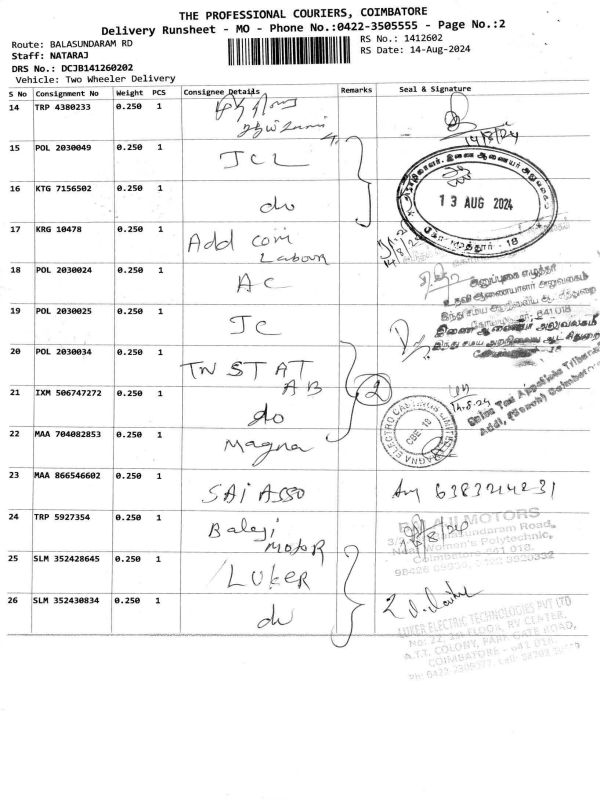 THE PROFESSIONAL COURIERS, COIMBATORE
Delivery Runsheet - MO - Phone No.:0422-3505555 - Page No.:2
Route: BALASUNDARAM RD
RS No.: 1412602
Staff: NATARAJ
RS Date: 14-Aug-2024
DRS No.: DCJB141260202
Vehicle: Two Wheeler Delivery
S No Consignment No Weight PCS Consignee Details Remarks Seal & Signature
14 TRP 4380233 0.250 1
14/8/24
15 POL 2030049 0.250 1 JCL
16 KTG 7156502 0.250 1 do
13 AUG 2024
17 KRG 10478 0.250 1 Add com
Labour
18 POL 2030024 0.250 1 AC
அனுப்புகை எழுத்தர்
உதவி ஆணையாளர் அலுவலகம்
19 POL 2030025 0.250 1 JC
641018
இணை ஆணையர் அலுவலகம்
20 POL 2030034 0.250 1 TN STAT
AB 2
21 IXM 506747272 0.250 1 do
14.8.24
Sales Tax Appellate Tribunal
Addl. (Bench) Coimbatore
22 MAA 704082853 0.250 1 Magna
MAGNA ELECTRO CASTINGS LIMITED
CBE-18
23 MAA 866546602 0.250 1 SAI ASSO 6383214231
24 TRP 5927354 0.250 1 Balaji
MOTOR
BALAJI MOTORS
Balasundaram Road,
Near Women's Polytechnic,
Coimbatore-641 018.
25 SLM 352428645 0.250 1 LUKER
26 SLM 352430834 0.250 1 do
LUKER ELECTRIC TECHNOLOGIES PVT LTD
No: 22, 1st FLOOR, RV CENTER,
A.T.T. COLONY, PARK GATE ROAD,
COIMBATORE - 641 018.